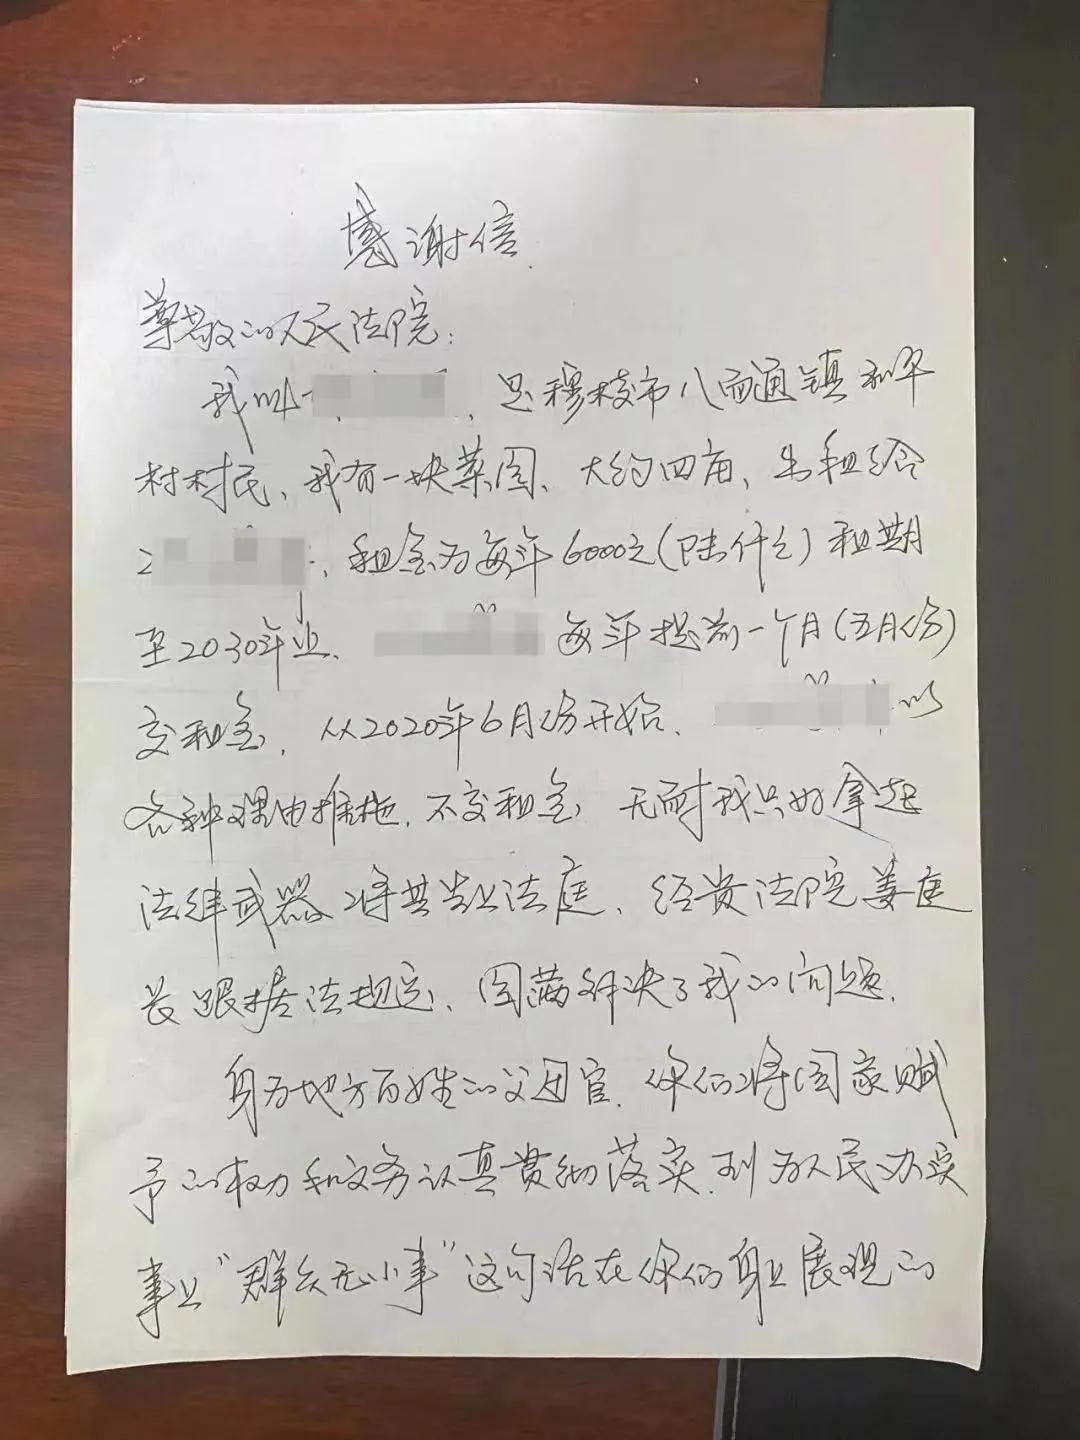 感谢信
尊敬的人民法院:
我叫 、是穆棱市八面通镇和平
村村民、我有一块菜园、大约四亩、出租给
、租金为每年6000元(陆仟元)租期
至2030年止、 每年提前一个月(五月份)
交租金、从2020年6月份开始、 以
各种理由推拖、不交租金、无耐我只好拿起
法律武器将其告上法庭、经贵法院姜庭
长跟据法规定、圆满解决了我的问题、
身为地方百姓的父母官、你们将国家赋
予的权力和义务认真贯彻落实到为人民办实
事上"群众无小事"这句话在你们身上展现的